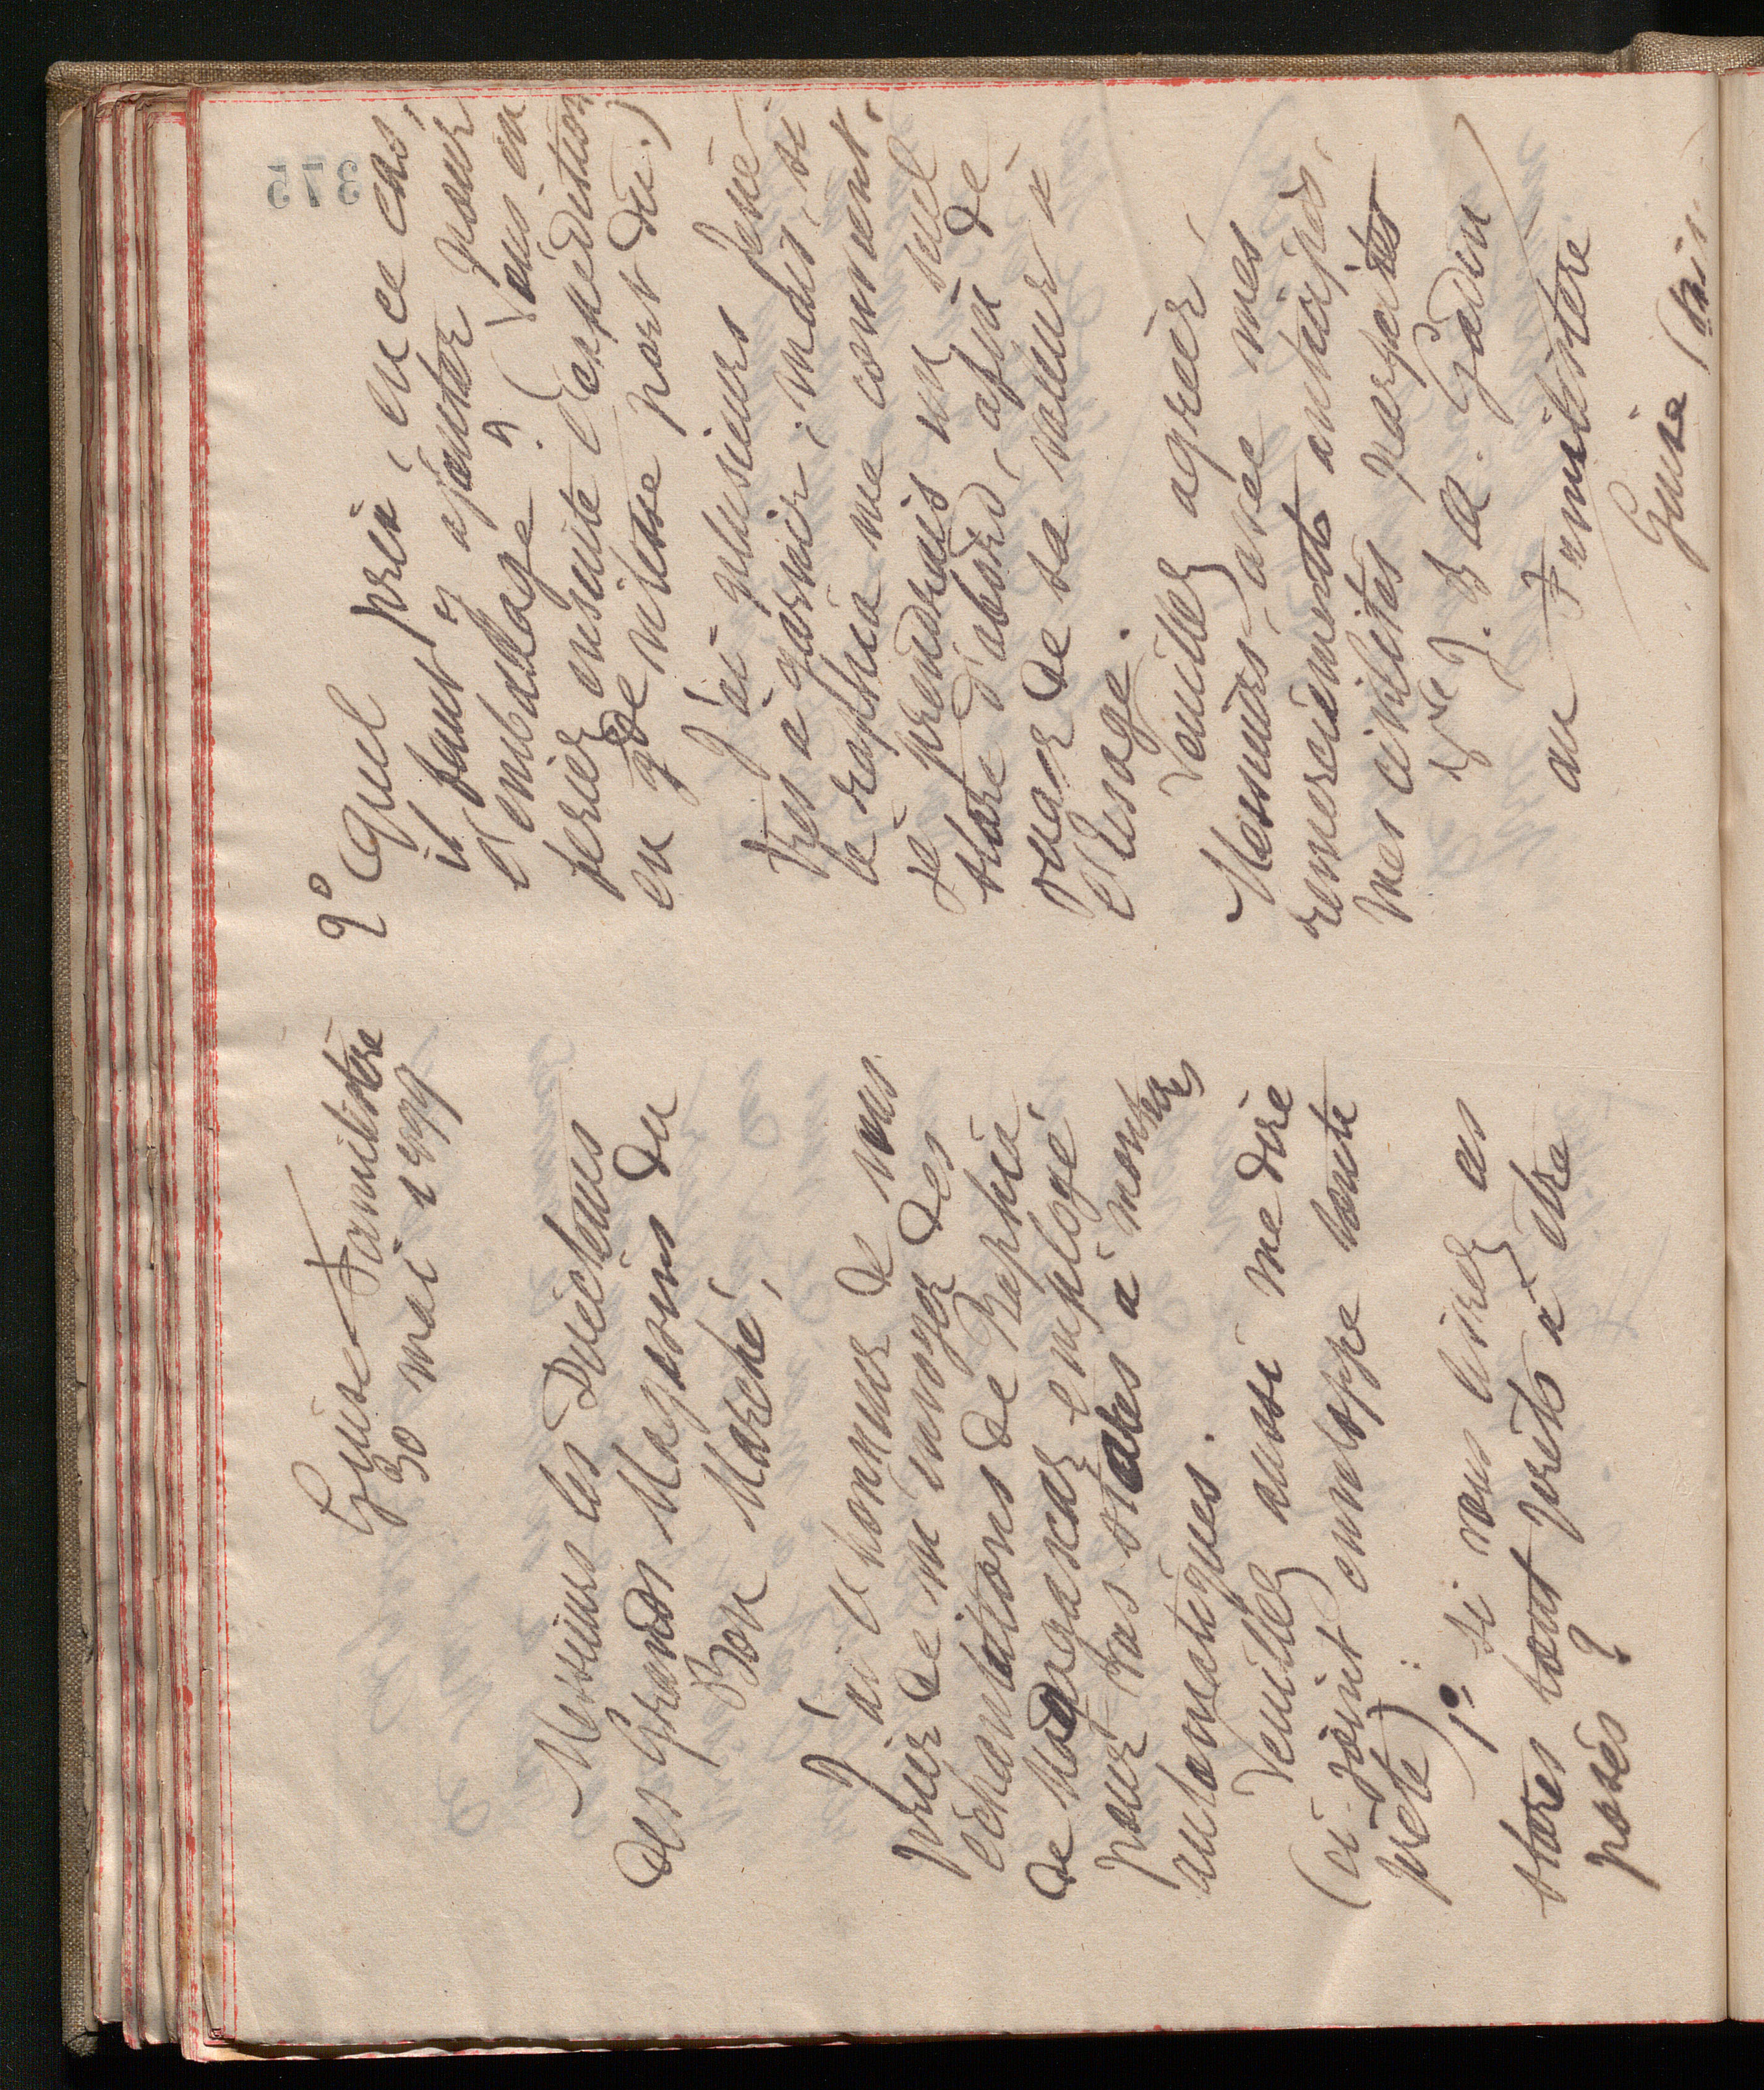 Guise Familistère
30 mai 1899
Messieurs les Directeurs
des Grands Magasins du
Bon Marché,
J'ai l'honneur de vous
prier de m'envoyer des
échantillons de Raphia
de Madagascar employé
pour vos stores à monture
automatiques.
Veuillez aussi me dire
(ci-joint enveloppe toute
prête) : 1° si vous livrez ces
stores tout prêts à être
posés ?
2° Quel prix, en ce cas,
il faut y ajouter pour
l'emballage ? (Vous en
feriez ensuite l'expédition
en gde vitesse port dû.)
J'ai plusieurs fenê-
tres à garnir ; mais, si
le raphia me convient,
je prendrais un seul
store d'abord, afin de
juger de sa valeur à
l'usage.
Veuillez agréer,
Messieurs, avec mes
remerciements anticipés,
mes civilités parfaites
Vve J. B. A. Godin
au Familistère
Guise (Aisne